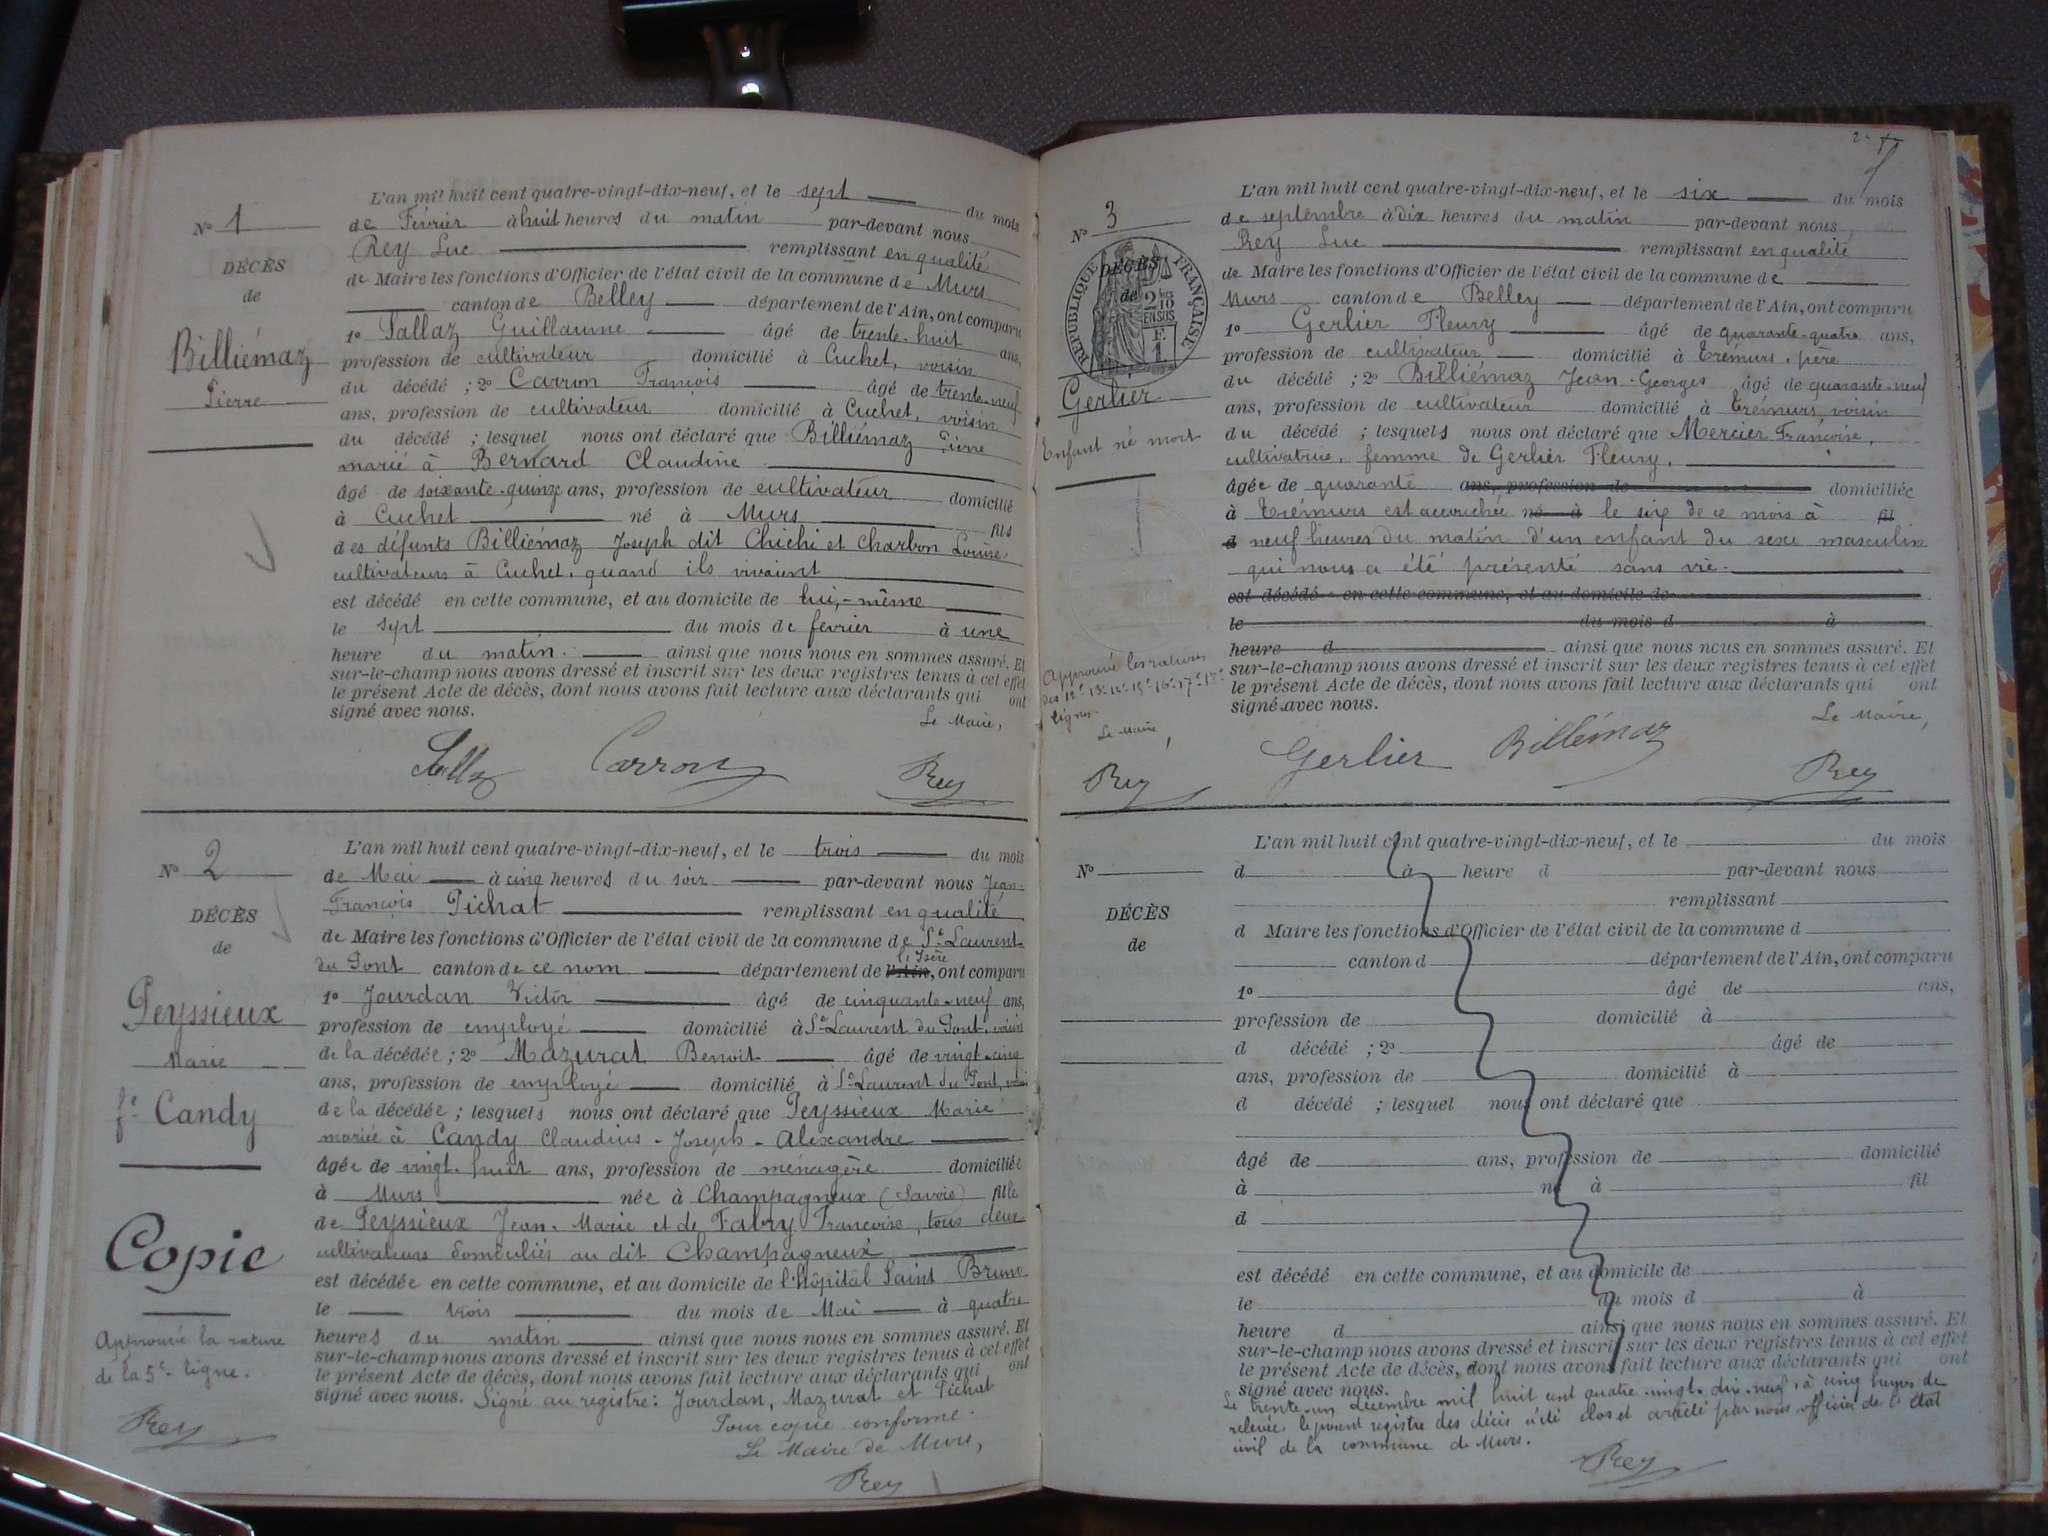 N° 1
DÉCÈS
de
Billiémaz
Pierre
L'an mil huit cent quatre-vingt-dix-neuf, et le sept du mois
de Février à huit heures du matin par-devant nous
Rey Luc remplissant en qualité
de Maire les fonctions d'Officier de l'état civil de la commune de Murs
canton de Belley département de l'Ain, ont comparu
1° Sallaz Guillaume âgé de trente-huit ans,
profession de cultivateur domicilié à Cuchet, voisin
du décédé ; 2° Carron François âgé de trente-neuf
ans, profession de cultivateur domicilié à Cuchet, voisin
du décédé ; lesquel nous ont déclaré que Billiémaz Pierre
marié à Bernard Claudine
âgé de soixante-quinze ans, profession de cultivateur domicilié
à Cuchet né à Murs fils
des défunts Billiémaz Joseph dit Chichi et Charbon Louise,
cultivateurs à Cuchet, quand ils vivaient
est décédé en cette commune, et au domicile de lui-même
le sept du mois de février à une
heure du matin. ainsi que nous nous en sommes assuré. Et
sur-le-champ nous avons dressé et inscrit sur les deux registres tenus à cet effet
le présent Acte de décès, dont nous avons fait lecture aux déclarants qui ont
signé avec nous. Le Maire,
Sallaz Carron Rey
N° 2
DÉCÈS
de
Peyssieux
Marie
fe Candy
Copie
Approuvé la rature
de la 5e ligne.
Rey
L'an mil huit cent quatre-vingt-dix-neuf, et le trois du mois
de Mai à cinq heures du soir par-devant nous Jean-
François Pichat remplissant en qualité
de Maire les fonctions d'Officier de l'état civil de la commune de St Laurent-
l'Isère
du Pont canton de ce nom département de l'Ain, ont comparu
1° Jourdan Victor âgé de cinquante-neuf ans,
profession de employé domicilié à St Laurent du Pont, voisin
de la décédée ; 2° Mazurat Benoit âgé de vingt-cinq
ans, profession de employé domicilié à St Laurent du Pont, voisin
de la décédée ; lesquels nous ont déclaré que Peyssieux Marie
mariée à Candy Claudius-Joseph-Alexandre
âgée de vingt-huit ans, profession de ménagère domiciliée
à Murs née à Champagneux (Savoie) fille
de Peyssieux Jean-Marie et de Fabry Françoise, tous deux
cultivateurs domiciliés au dit Champagneux
est décédée en cette commune, et au domicile de l'hôpital Saint Bruno
le trois du mois de Mai à quatre
heures du matin ainsi que nous nous en sommes assuré. Et
sur-le-champ nous avons dressé et inscrit sur les deux registres tenus à cet effet
le présent Acte de décès, dont nous avons fait lecture aux déclarants qui ont
signé avec nous. Signé au registre : Jourdan, Mazurat et Pichat
Pour copie conforme.
Le Maire de Murs,
Rey
N° 3
RÉPUBLIQUE FRANÇAISE
DÉCÈS
de
2/10 EN SUS
F. 1
Gerlier
Enfant né mort
Le Maire,
Rey
L'an mil huit cent quatre-vingt-dix-neuf, et le six du mois
de septembre à dix heures du matin par-devant nous
Rey Luc remplissant en qualité
de Maire les fonctions d'Officier de l'état civil de la commune de
Murs canton de Belley département de l'Ain, ont comparu
1° Gerlier Fleury âgé de quarante-quatre ans,
profession de cultivateur domicilié à Trémurs, père
du décédé ; 2° Billiémaz Jean-Georges âgé de quarante-neuf
ans, profession de cultivateur domicilié à Trémurs, voisin
du décédé ; lesquels nous ont déclaré que Mercier Françoise,
cultivatrice, femme de Gerlier Fleury,
âgée de quarante ans, profession de domiciliée
à Trémurs est accouchée né à le six de ce mois à fil
d neuf heures du matin d'un enfant du sexe masculin
qui nous a été présenté sans vie.
est décédé en cette commune, et au domicile de
le du mois d à
heure d ainsi que nous nous en sommes assuré. Et
sur-le-champ nous avons dressé et inscrit sur les deux registres tenus à cet effet
le présent Acte de décès, dont nous avons fait lecture aux déclarants qui ont
signé avec nous. Le Maire,
Gerlier Billiémaz Rey
N°
DÉCÈS
de
L'an mil huit cent quatre-vingt-dix-neuf, et le du mois
d à heure d par-devant nous
remplissant
d Maire les fonctions d'Officier de l'état civil de la commune d
canton d département de l'Ain, ont comparu
1° âgé de ans,
profession de domicilié à
d décédé ; 2° âgé de
ans, profession de domicilié à
d décédé ; lesquel nous ont déclaré que
âgé de ans, profession de domicilié
à né à fil
d
est décédé en cette commune, et au domicile de
le du mois d à
heure d ainsi que nous nous en sommes assuré. Et
sur-le-champ nous avons dressé et inscrit sur les deux registres tenus à cet effet
le présent Acte de décès, dont nous avons fait lecture aux déclarants qui ont
signé avec nous.
Le trente-un décembre mil huit cent quatre-vingt-dix-neuf, à cinq heures de
relevée, le présent registre des décès a été clos et arrêté par nous officier de l'état
civil de la commune de Murs.
Rey